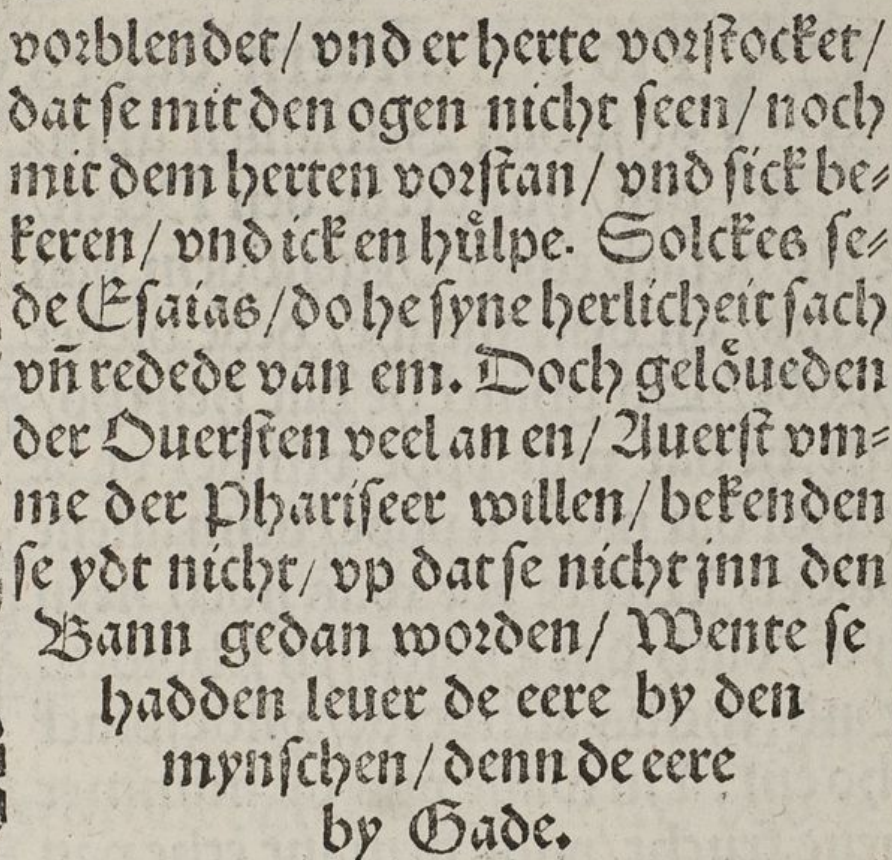 vorblendet/ vnd er herte vorstocket/
dat se mit den ogen nicht seen/ noch
mit dem herten vorstan/ vnd sick be⸗
keren/ vnd ick en huͤlpe. Solckes se⸗
de Esaias/ do he syne herlicheit sach
vn̄ redede van em. Doch geloͤueden
der Ouersten veel an en/ Auerst vm⸗
me der Phariseer willen/ bekenden
se ydt nicht/ vp dat se nicht jnn den
Bann gedan worden/ Wente se
hadden leuer de eere by den
mynschen/ denn de eere
by Gade.